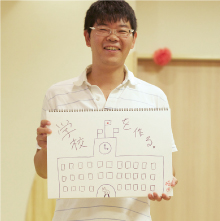 学校を作る。